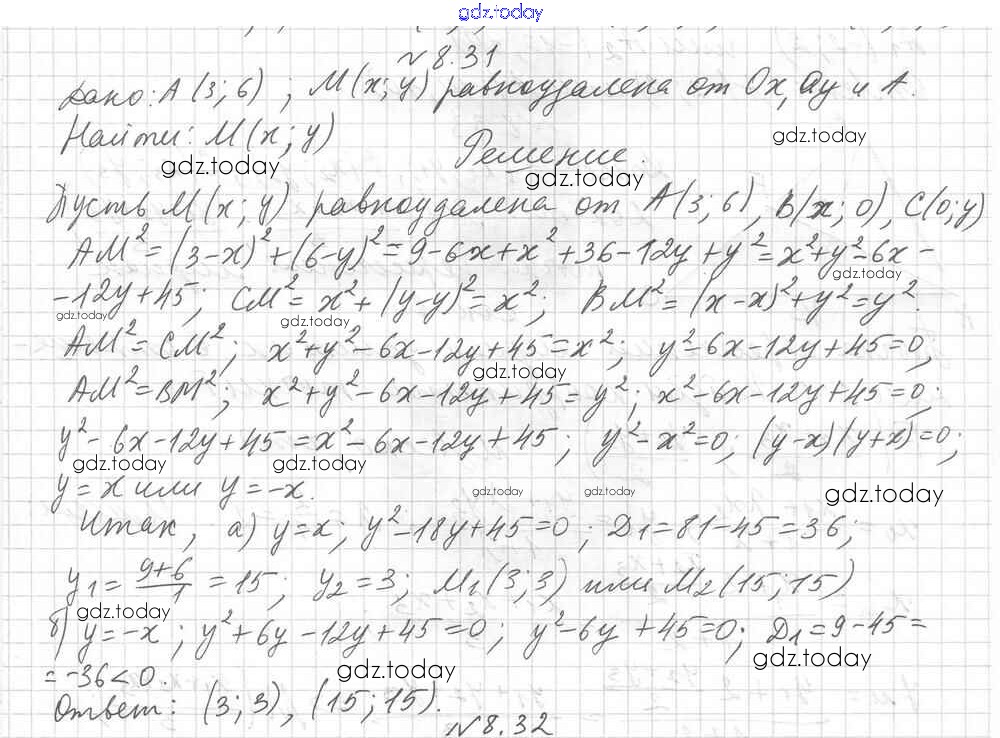 gdz.today
№ 8.31
Дано: A(3;6); M(x;y) равноудалена от Ox, Oy и A.
Найти: M(x;y)
gdz.today
gdz.today
Решение.
gdz.today
Пусть M(x;y) равноудалена от A(3;6), B(x;0), C(0;y)
AM²=(3-x)²+(6-y)²=9-6x+x²+36-12y+y²=x²+y²-6x-
gdz.today
-12y+45; CM²=x²+(y-y)²=x²; BM²=(x-x)²+y²=y².
gdz.today
gdz.today
AM²=CM²; x²+y²-6x-12y+45=x²; y²-6x-12y+45=0;
gdz.today
AM²=BM²; x²+y²-6x-12y+45=y²; x²-6x-12y+45=0;
y²-6x-12y+45=x²-6x-12y+45; y²-x²=0; (y-x)(y+x)=0;
gdz.today
gdz.today
y=x или y=-x.
gdz.today
gdz.today
gdz.today
Итак, а) y=x; y²-18y+45=0; D₁=81-45=36;
y₁=(9+6)/1=15; y₂=3; M₁(3;3) или M₂(15;15)
gdz.today
б) y=-x; y²+6y-12y+45=0; y²-6y+45=0; D₁=9-45=
gdz.today
gdz.today
=-36<0.
Ответ: (3;3), (15;15).
№ 8.32